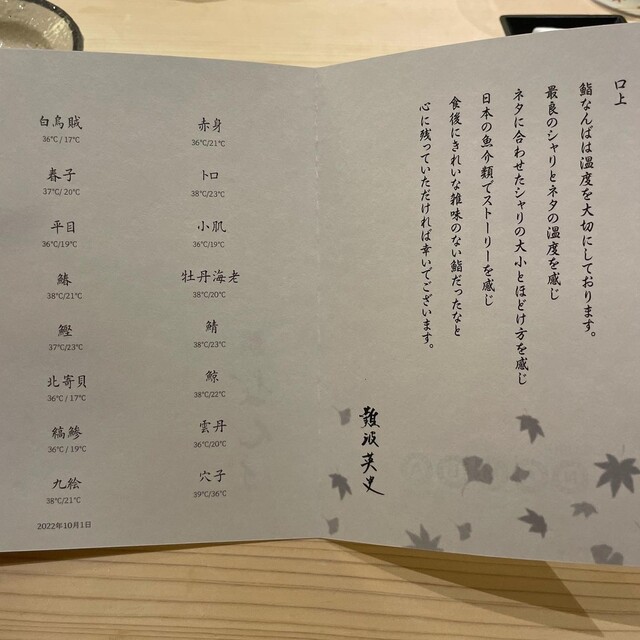 口上
鮨なんばは温度を大切にしております。
最良のシャリとネタの温度を感じ
ネタに合わせたシャリの大小とほどけ方を感じ
日本の魚介類でストーリーを感じ
食後にきれいな雑味のない鮨だったなと
心に残っていただければ幸いでございます。
難波英史
赤身
36℃/21℃
トロ
38℃/23℃
小肌
36℃/19℃
牡丹海老
38℃/20℃
鯖
38℃/23℃
鯨
38℃/22℃
雲丹
36℃/20℃
穴子
39℃/36℃
白烏賊
36℃ / 17℃
春子
37℃/ 20℃
平目
36℃/19℃
鰆
38℃/21℃
鰹
37℃/23℃
北寄貝
36℃ / 17℃
縞鯵
36℃ / 19℃
九絵
38℃/21℃
2022年10月1日